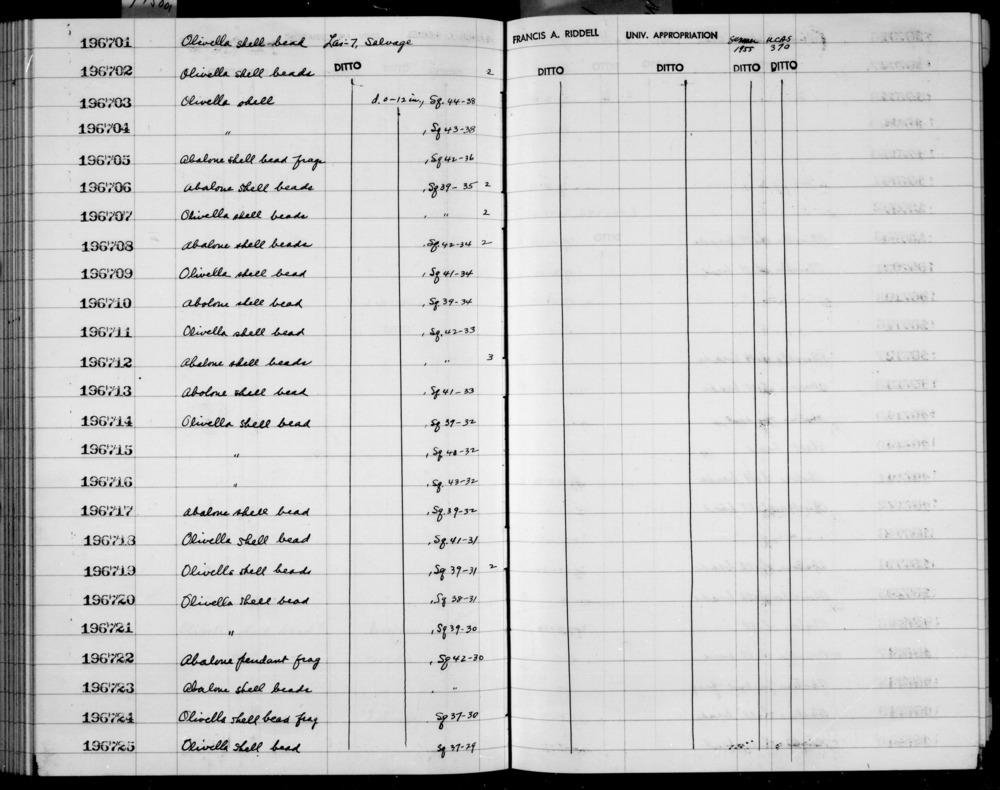 196701 Olivella shell bead Las-7, Salvage FRANCIS A. RIDDELL UNIV. APPROPRIATION Summer 1955 UCAS 370
196702 Olivella shell beads DITTO 2 DITTO DITTO DITTO DITTO
196703 Olivella shell d. 0-12 in., Sq. 44-38
196704 " , Sq 43-38
196705 Abalone shell bead frags , Sq 42-36
196706 Abalone shell beads , Sq 39-35 2
196707 Olivella shell beads , " 2
196708 Abalone shell beads , Sq. 42-34 2
196709 Olivella shell bead , Sq 41-34
196710 Abolone shell bead , Sq. 39-34
196711 Olivella shell bead , Sq. 42-33
196712 Abalone shell beads , " 3
196713 Abolone shell bead , Sq 41-33
196714 Olivella shell bead , Sq 39-32
196715 " , Sq 40-32
196716 " , Sq. 43-32
196717 Abalone shell bead , Sq. 39-32
196718 Olivella shell bead , Sq. 41-31
196719 Olivella shell beads , Sq 39-31 2
196720 Olivella shell bead , Sq 38-31
196721 " , Sq 39-30
196722 Abalone pendant frag , Sq 42-30
196723 Abalone shell beads , "
196724 Olivella shell bead frag Sq 37-30
196725 Olivella shell bead Sq 37-29